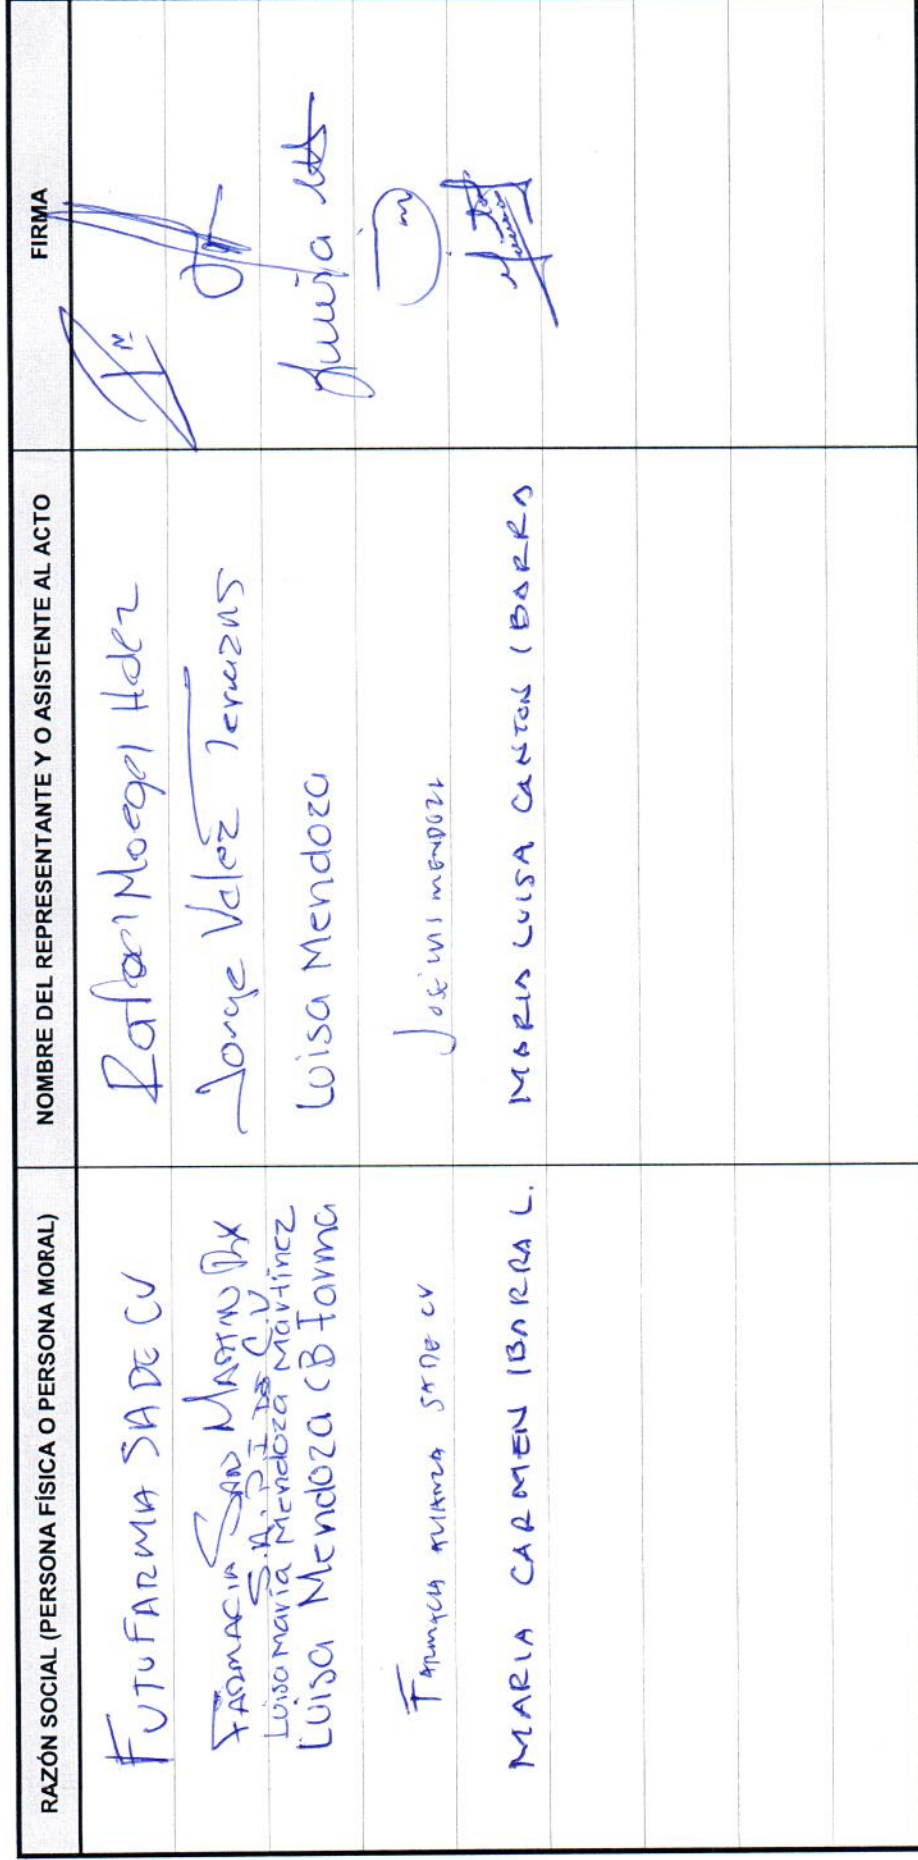 RAZÓN SOCIAL (PERSONA FÍSICA O PERSONA MORAL) NOMBRE DEL REPRESENTANTE Y O ASISTENTE AL ACTO FIRMA
FUTUFARMA SA DE CV Rafael Hdez
FARMACIA SAN MARTIN Jorge Valez Terrazas
S.A.P.I DE C.V
Luisa María Mendoza Martínez
Luisa Mendoza CB Farma Luisa Mendoza Luisa
FARMACIA ALIANZA SA DE CV JOSÉ LUIS MENDOZA
MARIA CARMEN IBARRA L. MARIA LUISA CANTON IBARRA